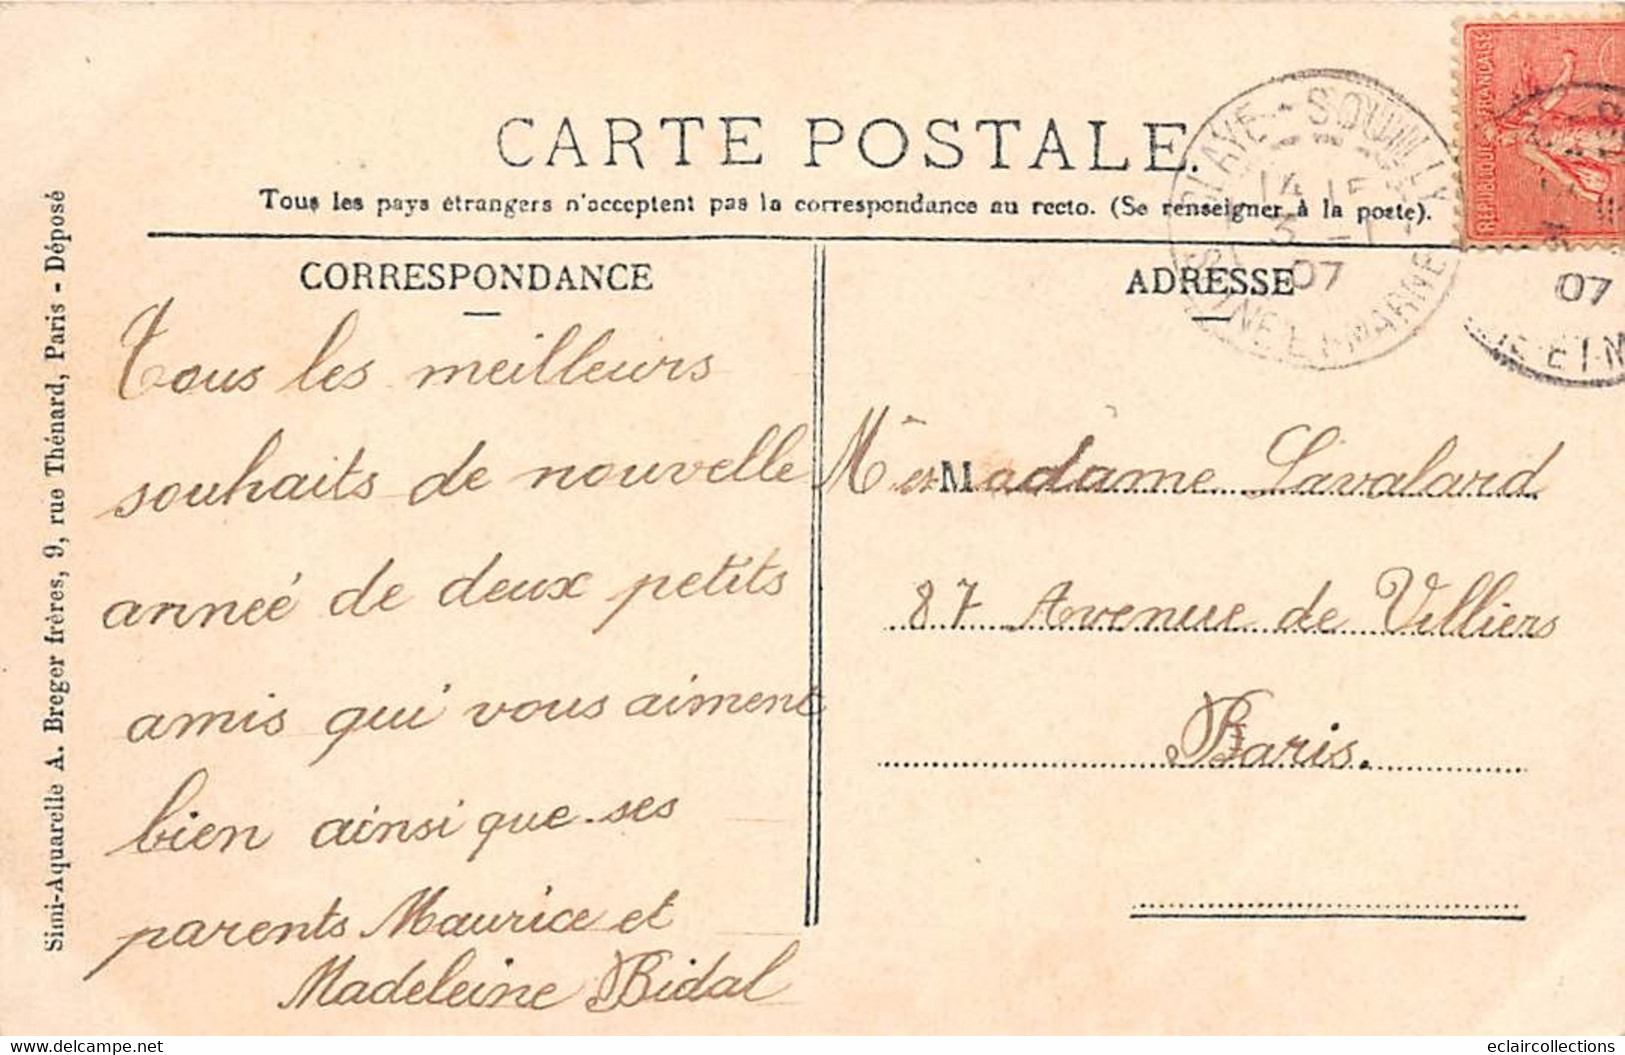 CARTE POSTALE.
Tous les pays étrangers n'acceptent pas la correspondance au recto. (Se renseigner à la poste).
CORRESPONDANCE
ADRESSE
Tous les meilleurs
souhaits de nouvelle
année de deux petits
amis qui vous aiment
bien ainsi que ses
parents Maurice et
Madeleine Bidal
Mr et Madame Lavalard
87 Avenue de Villiers
Paris.
Simi-Aquarelle A. Breger frères, 9, rue Thénard, Paris - Déposé
REPUBLIQUE FRANÇAISE
CLAYE-SOUILLY
14 15
5 -1
07
SEINE ET MARNE
07
ET M
www.delcampe.net
eclaircollections